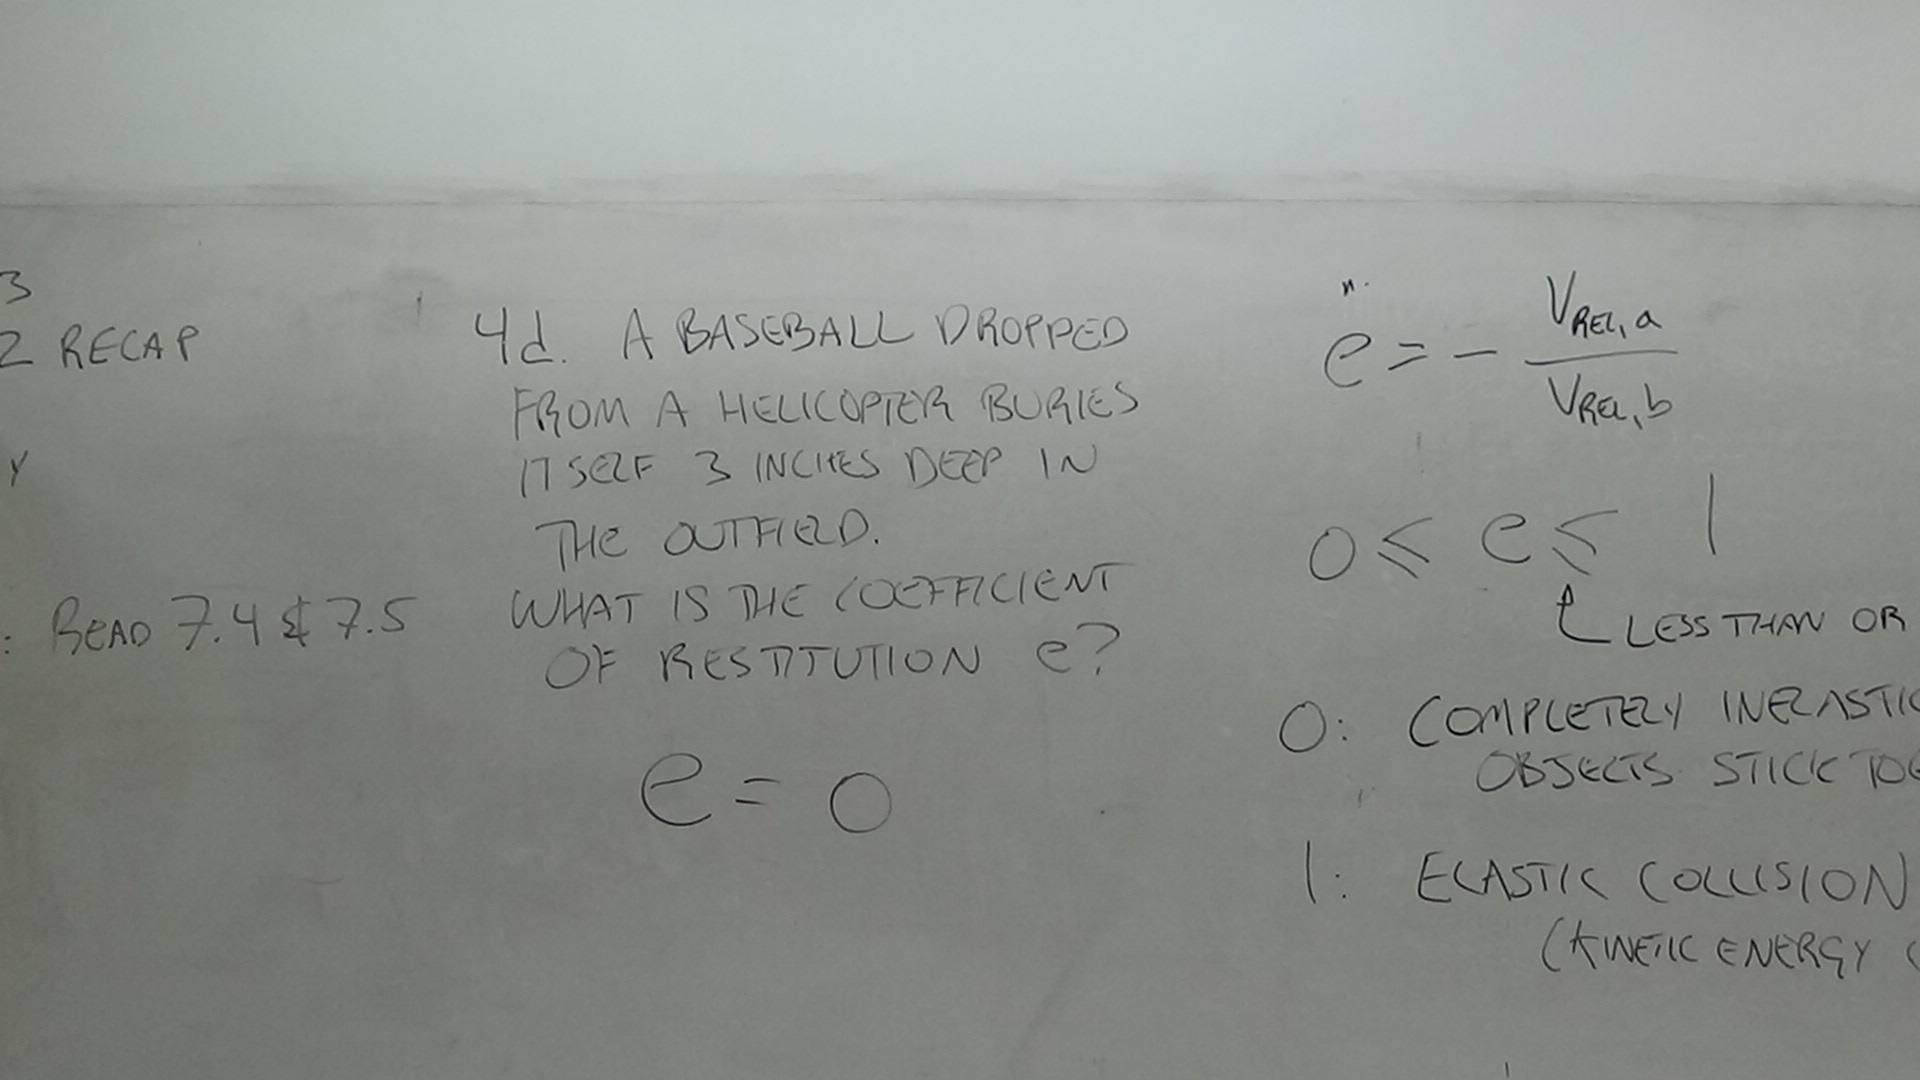 3
2 RECAP
Y
: READ 7.4 & 7.5
4d. A BASEBALL DROPPED
FROM A HELICOPTER BURIES
ITSELF 3 INCHES DEEP IN
THE OUTFIELD.
WHAT IS THE COEFFICIENT
OF RESTITUTION e?
e = 0
e = - V_REL,a / V_REL,b
0 ≤ e ≤ 1
LESS THAN OR
0: COMPLETELY INELASTIC
OBJECTS STICK TOG
1: ELASTIC COLLISION
(KINETIC ENERGY C